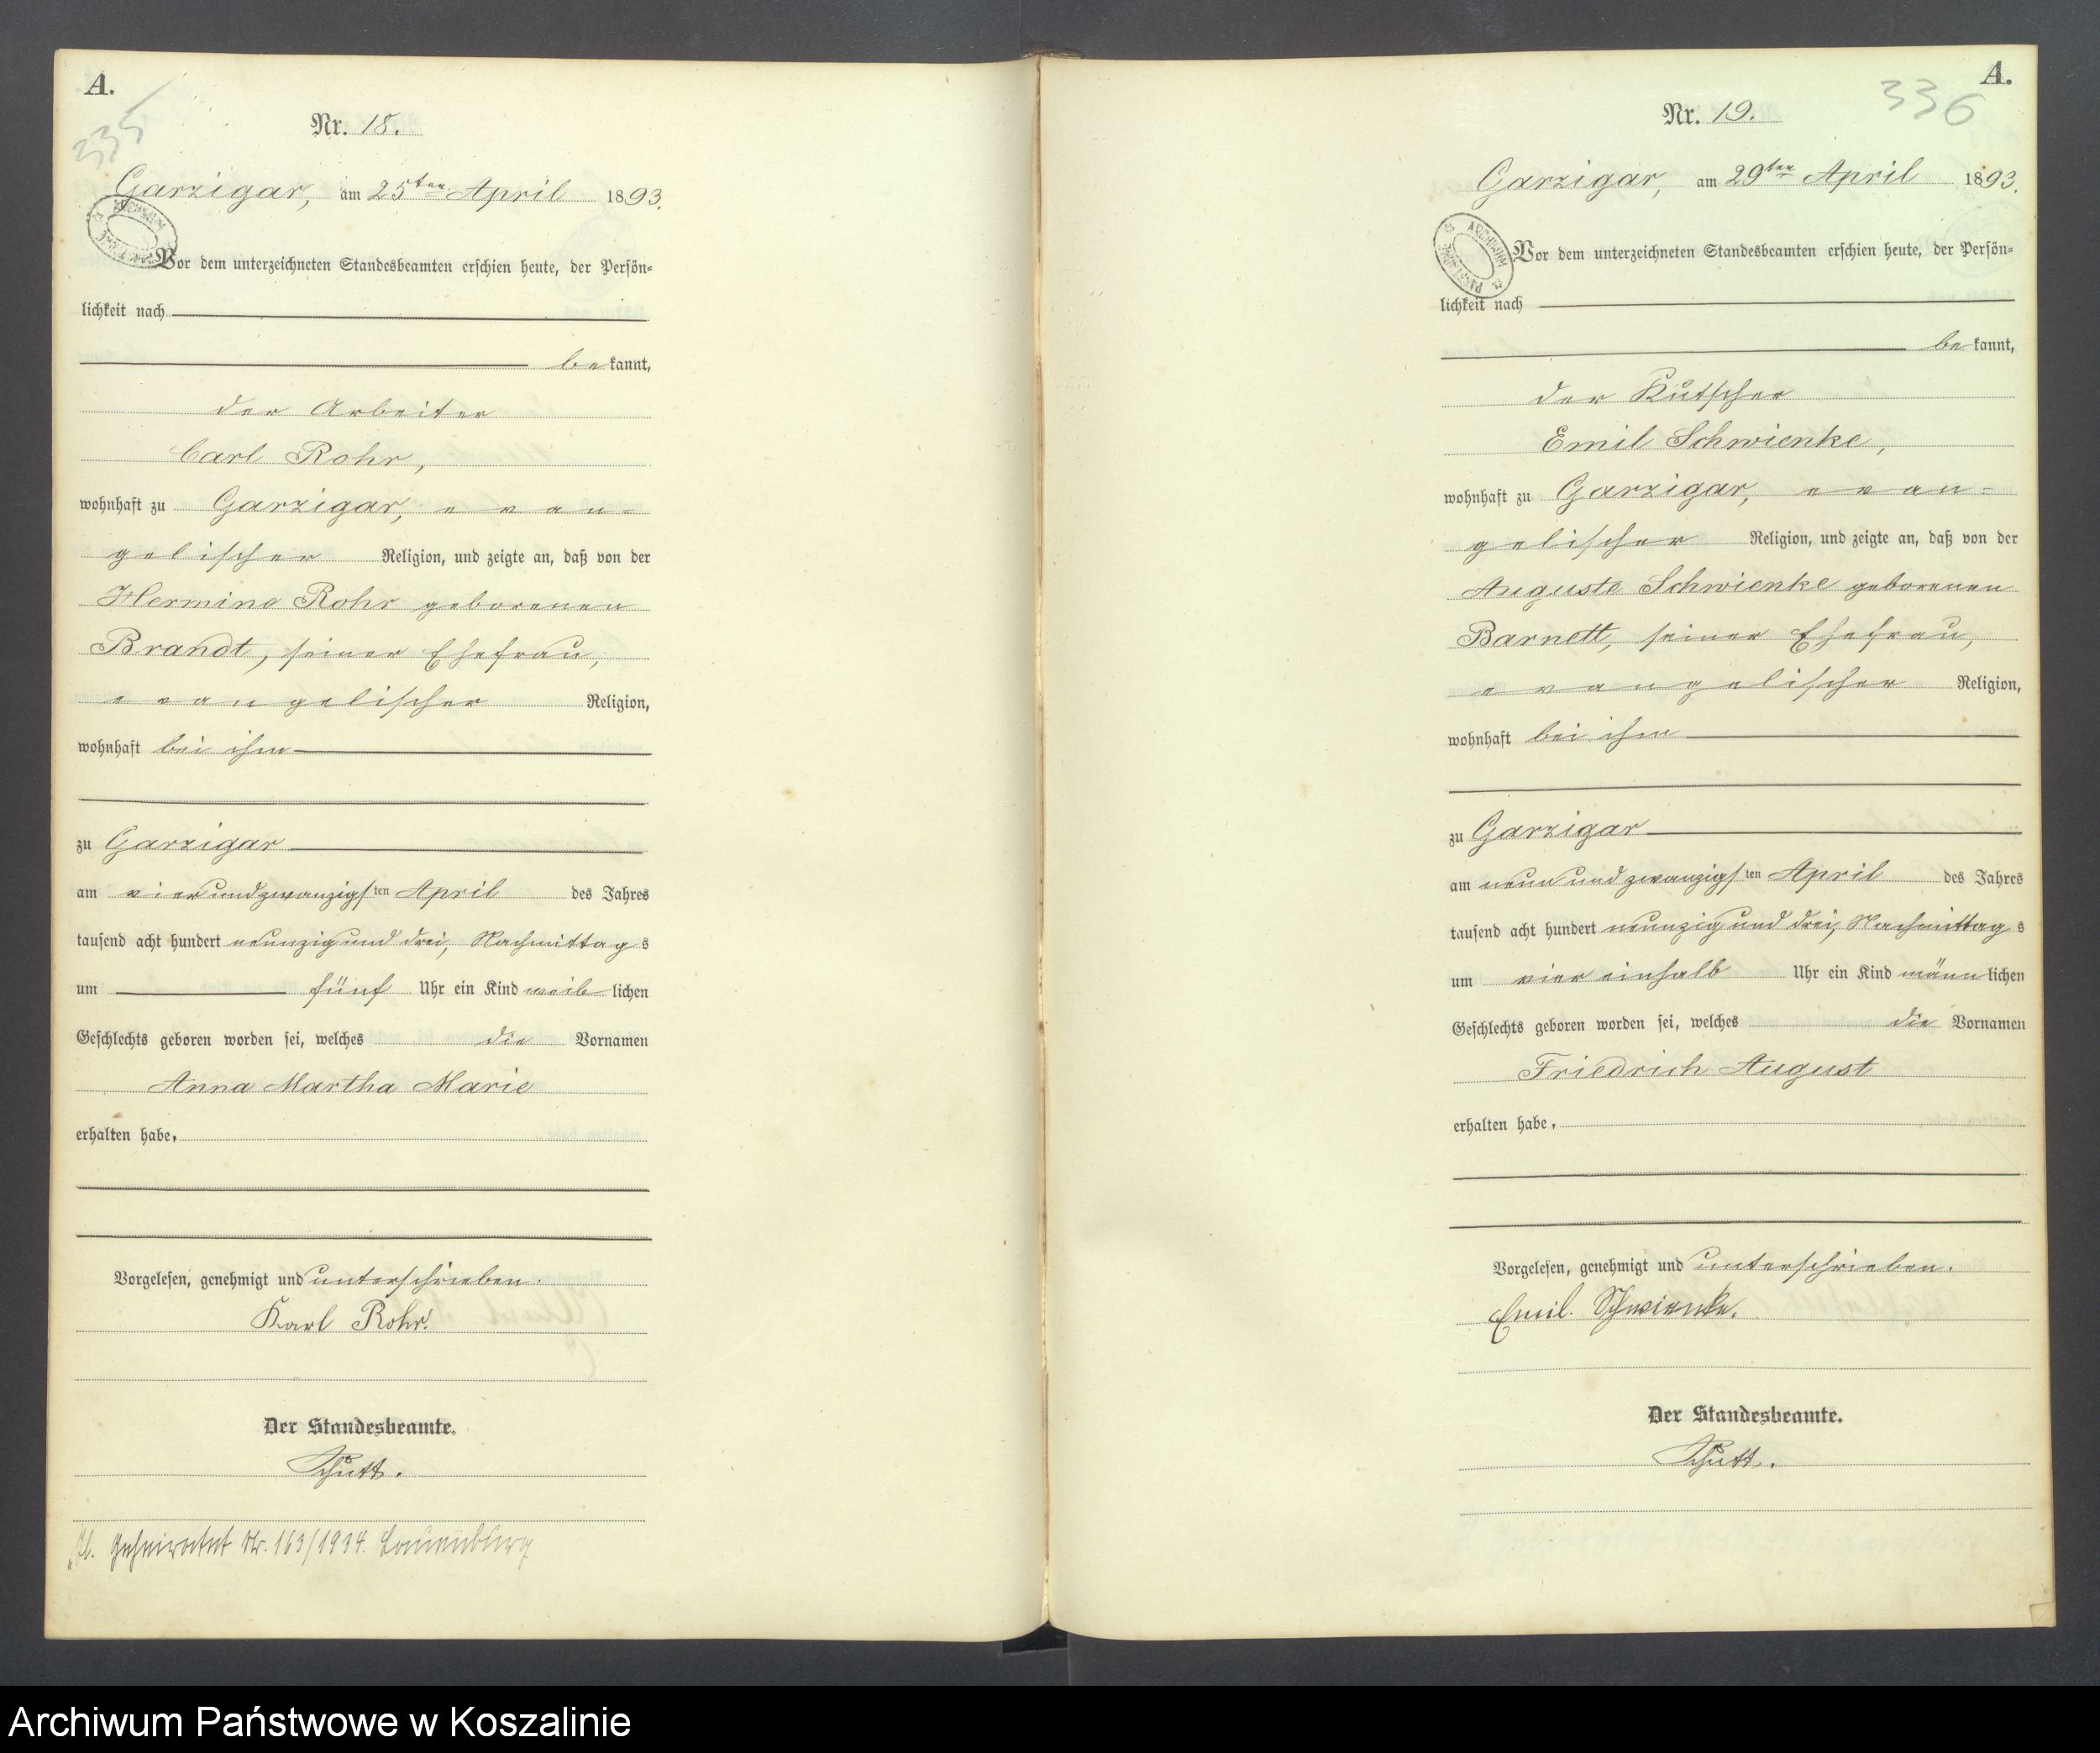 A.
335
Nr. 18.
Garzigar, am 25ten April 1893.
Vor dem unterzeichneten Standesbeamten erschien heute, der Persön=
lichkeit nach
be kannt,
der Arbeiter
Carl Rohr,
wohnhaft zu Garzigar, evan=
gelischer Religion, und zeigte an, daß von der
Hermine Rohr geborenen
Brandt, seiner Ehefrau,
evangelischer Religion,
wohnhaft bei ihm
zu Garzigar
am vierundzwanzigsten April des Jahres
tausend acht hundert neunzig und drei, Nachmittags
um fünf Uhr ein Kind weiblichen
Geschlechts geboren worden sei, welches die Vornamen
Anna Martha Marie
erhalten habe.
Vorgelesen, genehmigt und unterschrieben.
Karl Rohr.
Der Standesbeamte.
Schutt.
geheiratet Nr. 163/1934. Lauenburg
A.
336
Nr. 19.
Garzigar, am 29ten April 1893.
ARCHIWUM
Vor dem unterzeichneten Standesbeamten erschien heute, der Persön=
lichkeit nach
be kannt,
der Kutscher
Emil Schwienke,
wohnhaft zu Garzigar, evan=
gelischer Religion, und zeigte an, daß von der
Auguste Schwienke geborenen
Barnett, seiner Ehefrau,
evangelischer Religion,
wohnhaft bei ihm
zu Garzigar
am neunundzwanzigsten April des Jahres
tausend acht hundert neunzig und drei, Nachmittags
um vier einhalb Uhr ein Kind männlichen
Geschlechts geboren worden sei, welches die Vornamen
Friedrich August
erhalten habe.
Vorgelesen, genehmigt und unterschrieben.
Emil. Schwienke.
Der Standesbeamte.
Schutt.
Archiwum Państwowe w Koszalinie